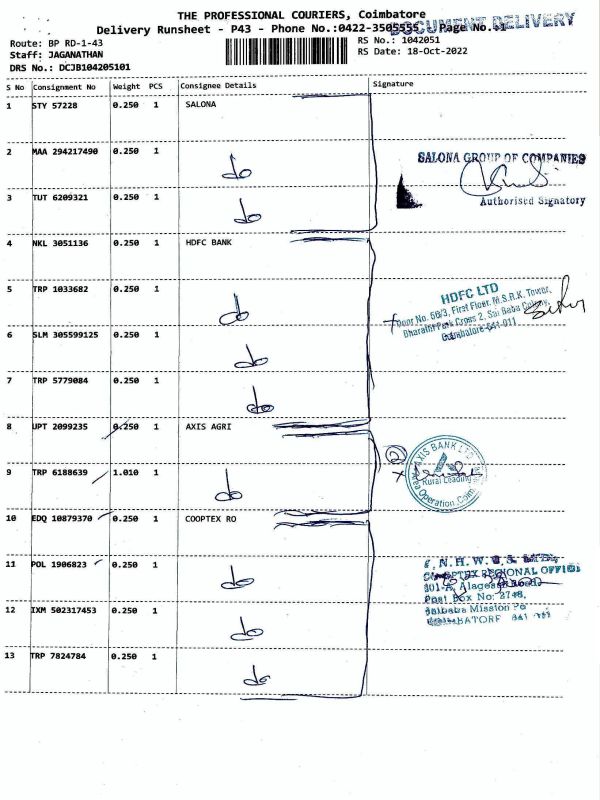 THE PROFESSIONAL COURIERS, Coimbatore
DOCUMENT DELIVERY
Delivery Runsheet - P43 - Phone No.:0422-3505555 Page No.:1
Route: BP RD-1-43
RS No.: 1042051
Staff: JAGANATHAN
RS Date: 18-Oct-2022
DRS No.: DCJB104205101
S No Consignment No Weight PCS Consignee Details Signature
1 STY 57228 0.250 1 SALONA
2 MAA 294217490 0.250 1
do
SALONA GROUP OF COMPANIES
3 TUT 6209321 0.250 1
do
Authorised Signatory
4 NKL 3051136 0.250 1 HDFC BANK
5 TRP 1033682 0.250 1
do
HDFC LTD
Door No. 66/3, First Floor, M.S.R.K. Tower,
Bharathi Park Cross 2, Sai Baba Colony,
Coimbatore-641 011
6 SLM 305599125 0.250 1
do
7 TRP 5779084 0.250 1
do
8 UPT 2099235 0.250 1 AXIS AGRI
9 TRP 6188639 1.010 1
do
2
AXIS BANK LTD
Rural Lending
Operation
10 EDQ 10879370 0.250 1 COOPTEX RO
11 POL 1906823 0.250 1
do
COOPTEX REGIONAL OFFICE
Post Box No:
Saibaba Mission
COIMBATORE 641
12 IXM 502317453 0.250 1
do
13 TRP 7824784 0.250 1
do